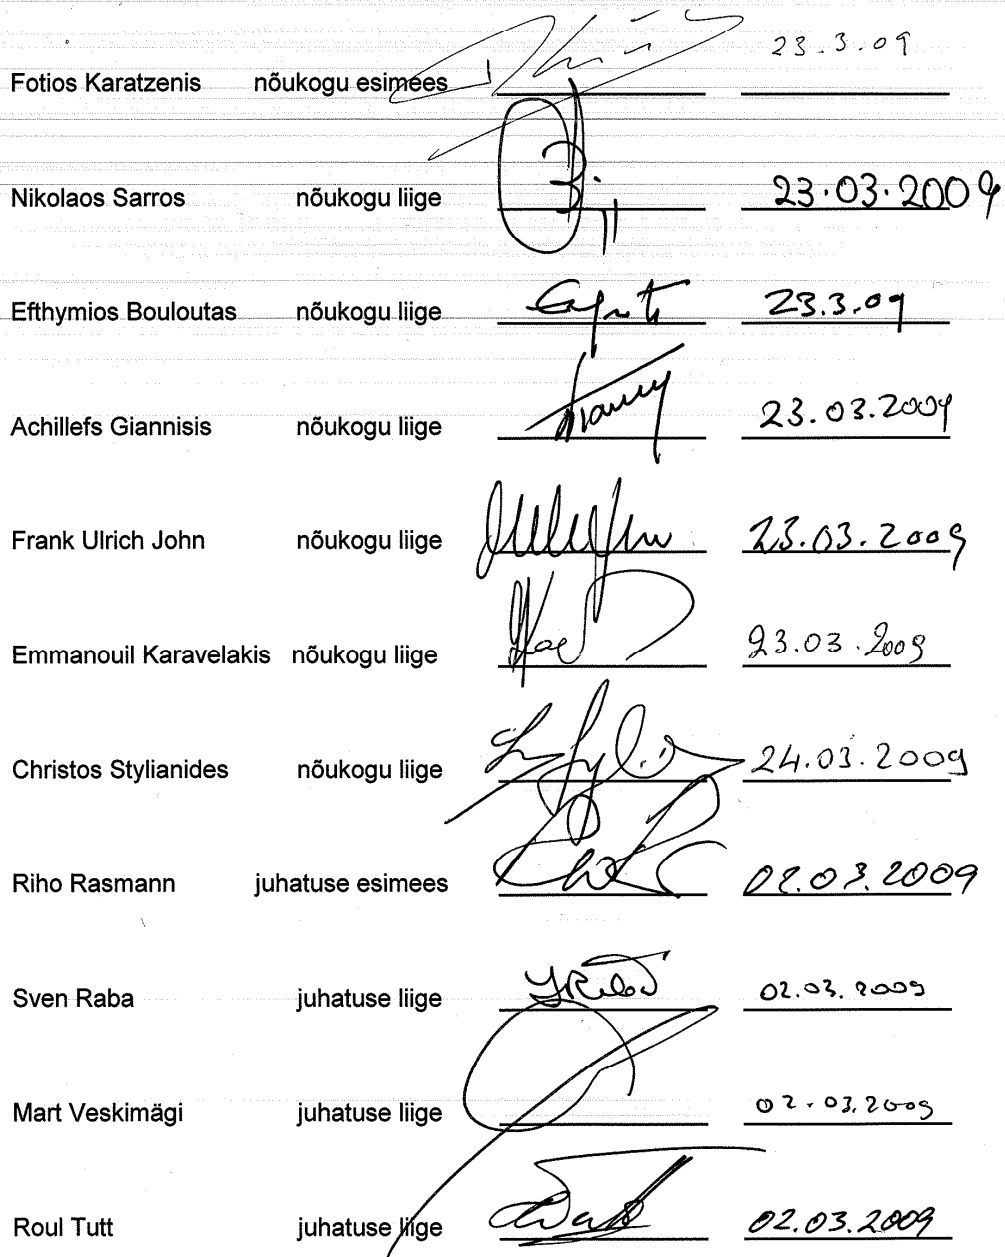 Fotios Karatzenis nõukogu esimees 23.3.09
Nikolaos Sarros nõukogu liige 23.03.2009
Efthymios Bouloutas nõukogu liige 23.3.09
Achillefs Giannisis nõukogu liige 23.03.2009
Frank Ulrich John nõukogu liige 23.03.2009
Emmanouil Karavelakis nõukogu liige 23.03.2009
Christos Stylianides nõukogu liige 24.03.2009
Riho Rasmann juhatuse esimees 02.03.2009
Sven Raba juhatuse liige 02.03.2009
Mart Veskimägi juhatuse liige 02.03.2009
Roul Tutt juhatuse liige 02.03.2009